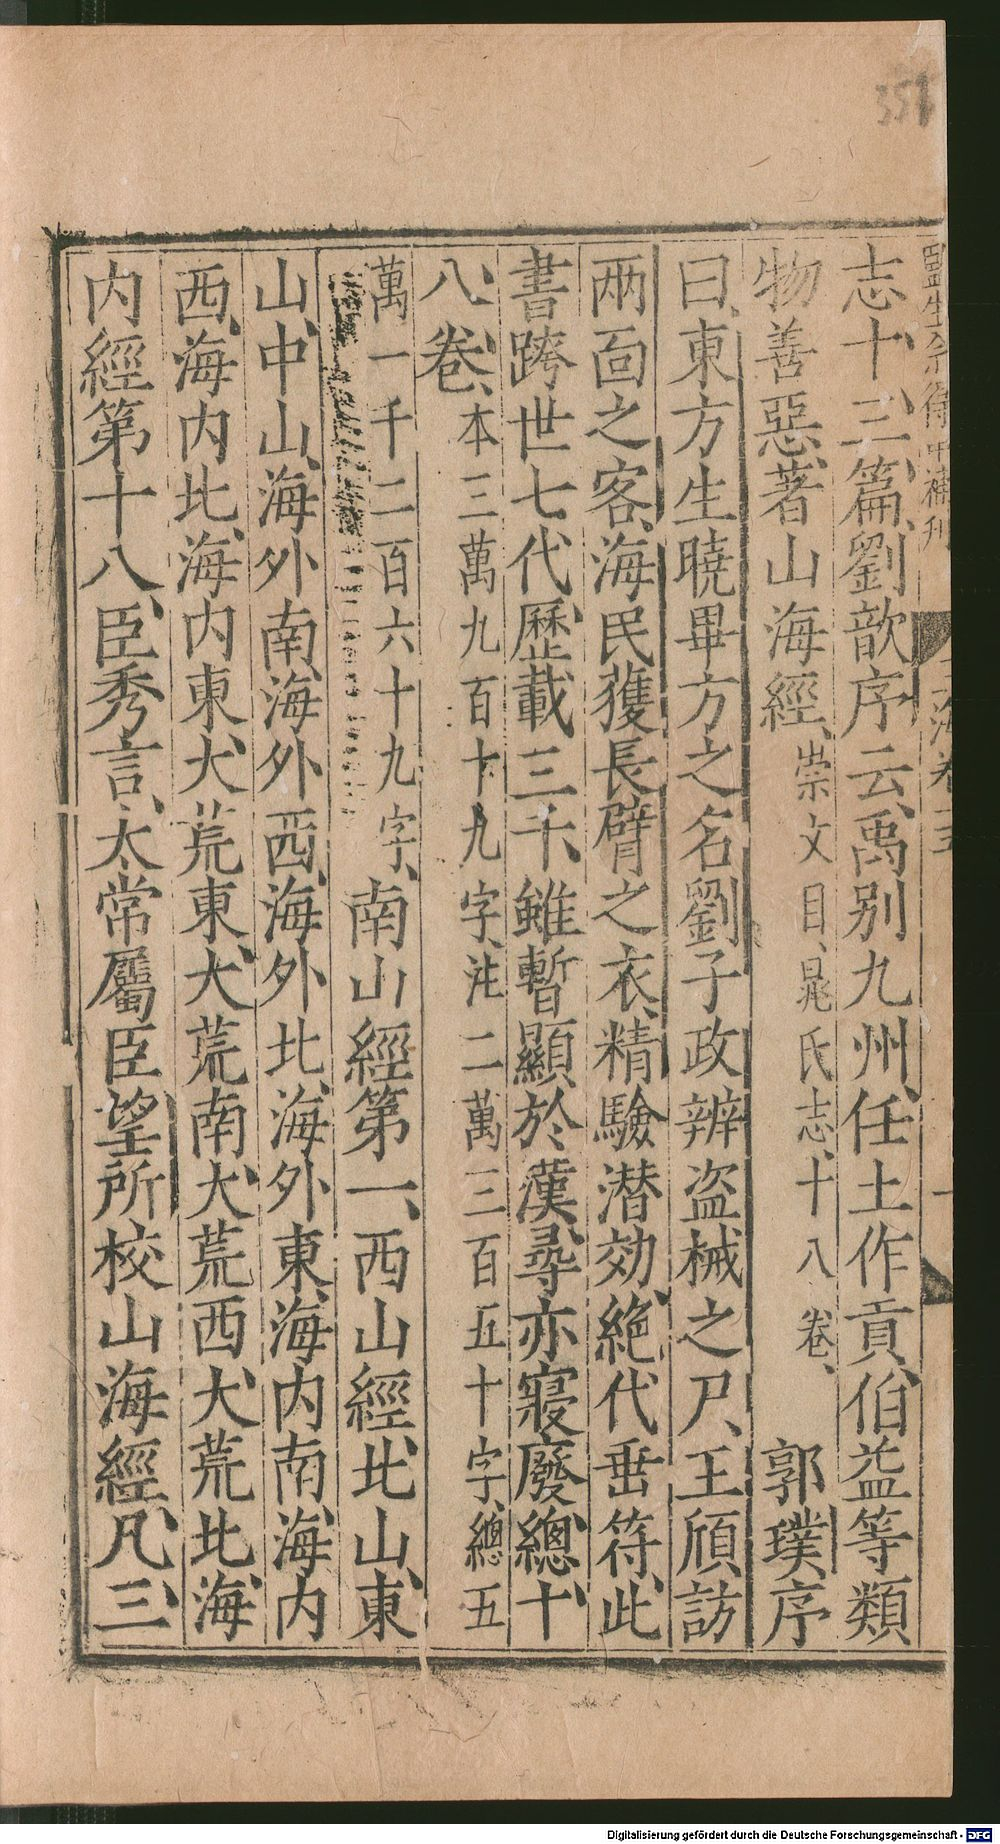 351
監生
補刊
玉海卷十五
志十三篇劉歆序云禹別九州任土作貢伯益等類
物善惡著山海經崇文目晁氏志十八卷 郭璞序
曰東方生曉畢方之名劉子政辨盜械之尸王頎訪
兩面之客海民獲長臂之衣精驗潜効絶代垂符此
書跨世七代歷載三千雖暫顯於漢尋亦寢廢總十
八卷本三萬九百十九字注二萬三百五十字總五
萬一千二百六十九字南山經第一西山經北山東
山中山海外南海外西海外北海外東海内南海内
西海内北海内東大荒東大荒南大荒西大荒北海
内經第十八臣秀言太常屬臣望所校山海經凡三
Digitalisierung gefördert durch die Deutsche Forschungsgemeinschaft - DFG